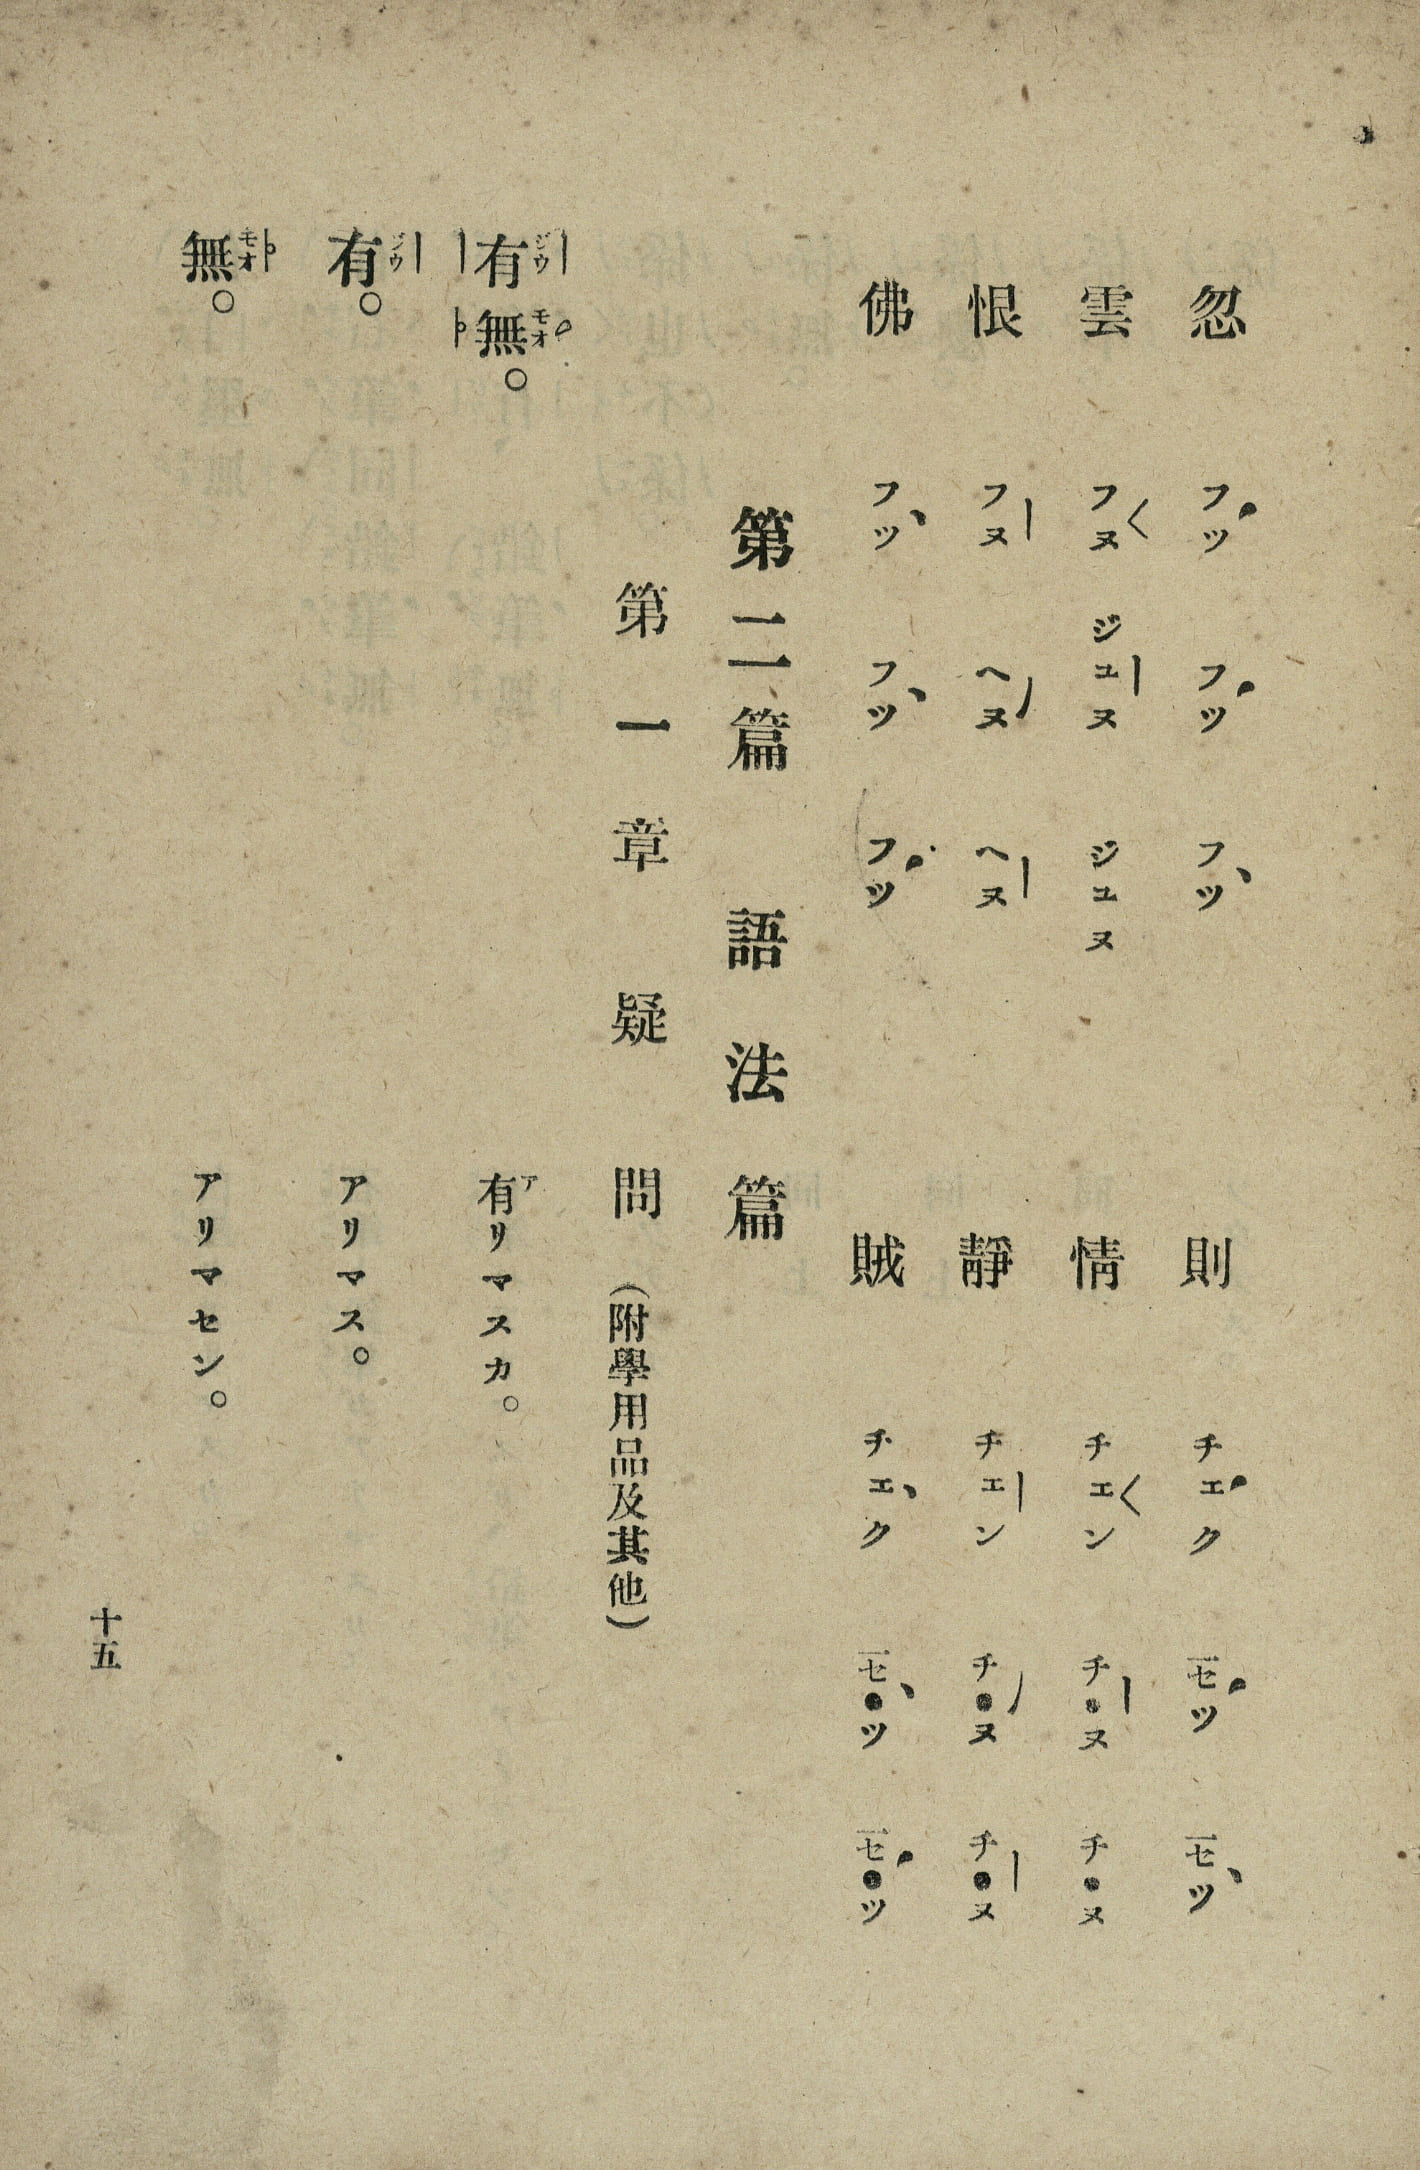 忽 フツ フツ フツ 則 チェク セツ セツ
雲 フヌ ジユヌ ジユヌ 情 チェン チ●ヌ チ●ヌ
恨 フヌ ヘヌ ヘヌ 靜 チェン チ●ヌ チ●ヌ
佛 フツ フツ フツ 賊 チェク セ●ツ セ●ツ
第二篇 語法篇
第一章 疑問 (附學用品及其他)
有ジウ無モオ。 有アリマスカ。
有ジウ。 アリマス。
無モオ。 アリマセン。
十五